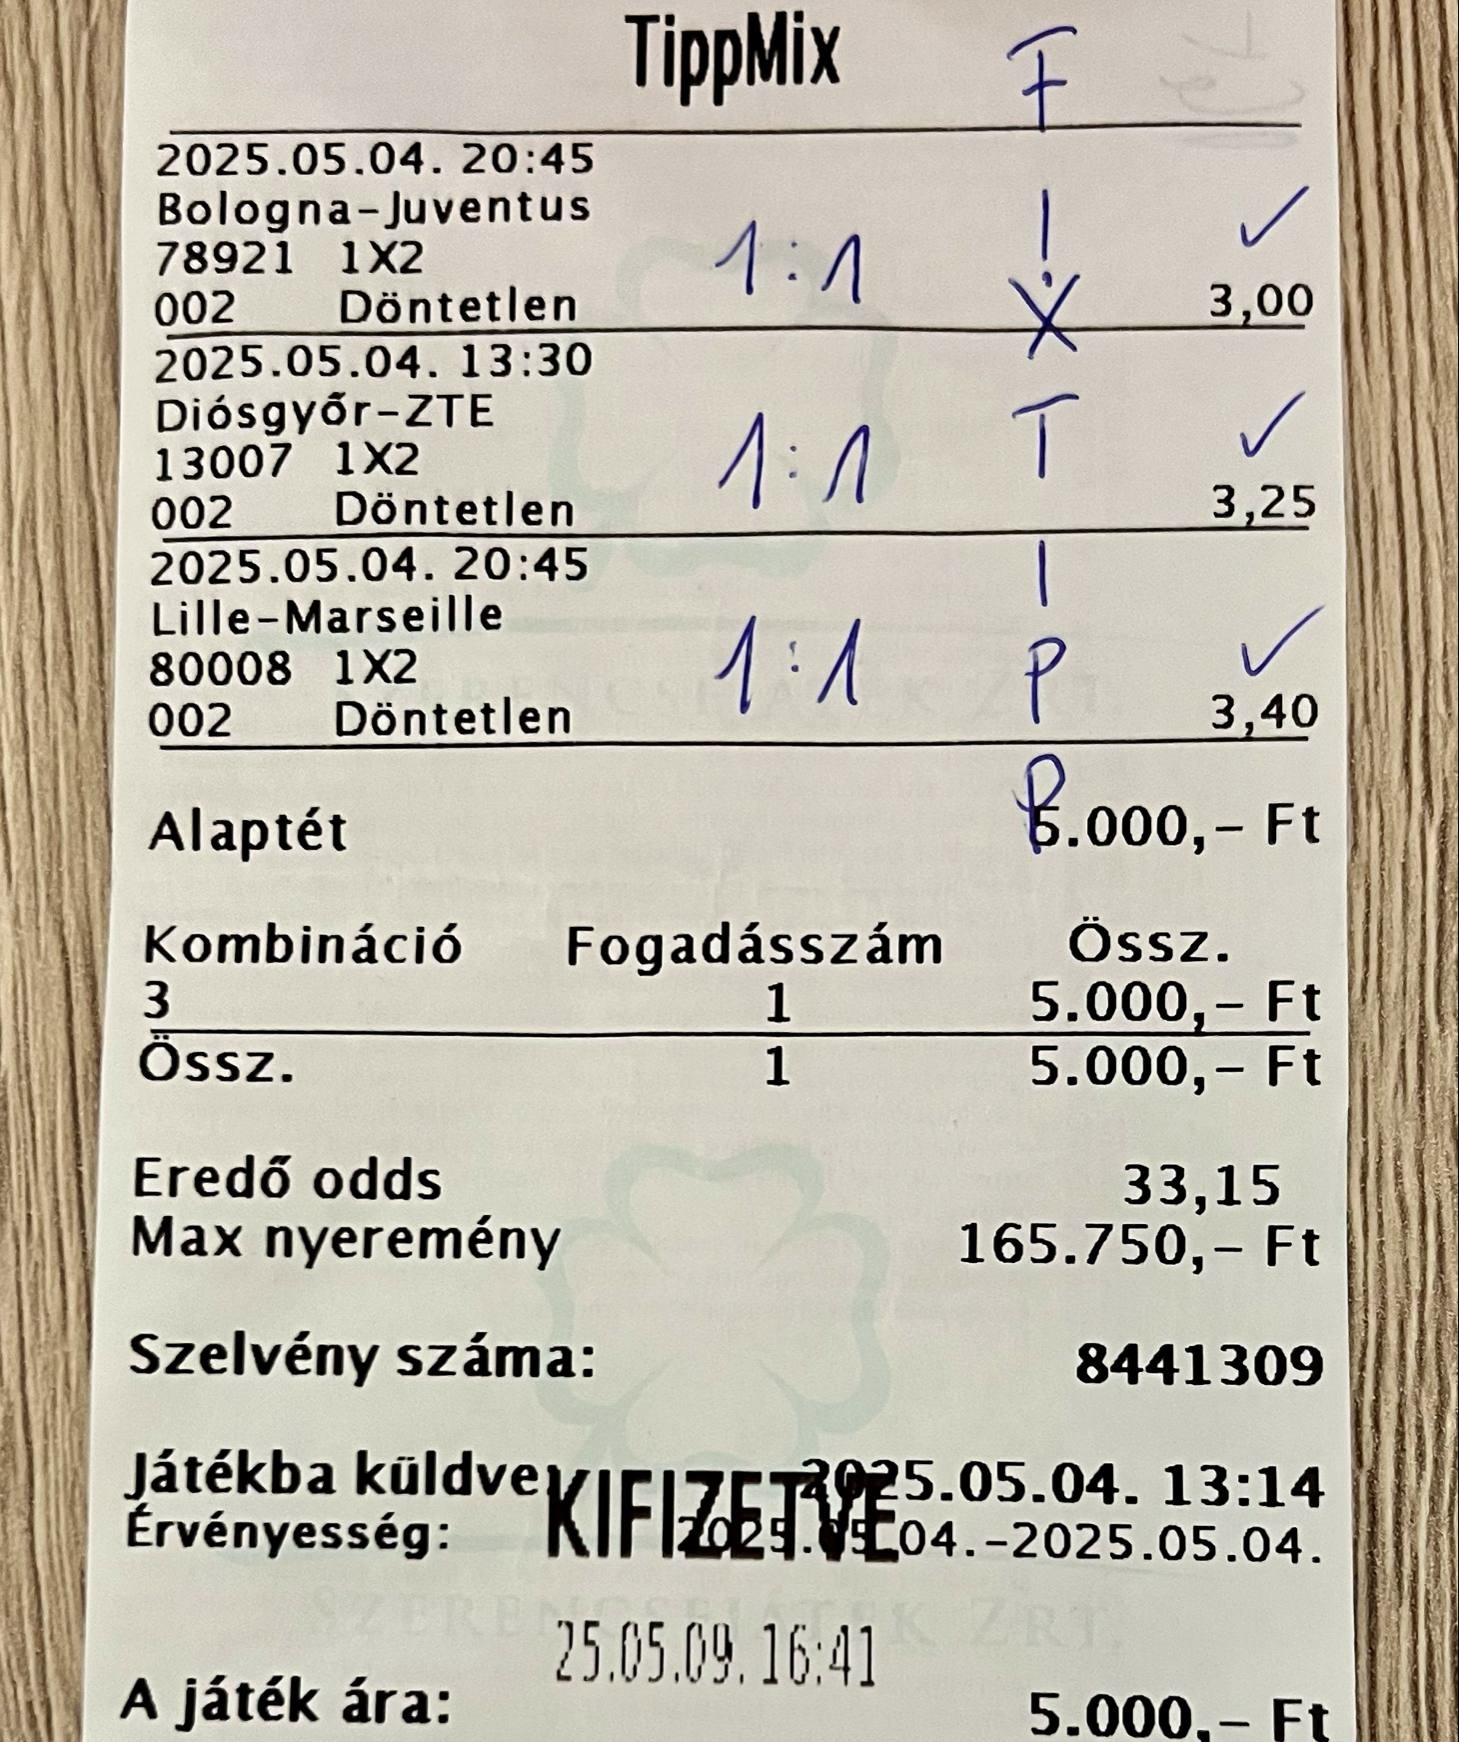 TippMix
F
I
X
T
I
P
P
2025.05.04. 20:45
Bologna-Juventus
78921 1X2 1:1 ✓
002 Döntetlen 3,00
2025.05.04. 13:30
Diósgyőr-ZTE
13007 1X2 1:1 ✓
002 Döntetlen 3,25
2025.05.04. 20:45
Lille-Marseille
80008 1X2 1:1 ✓
002 Döntetlen 3,40
Alaptét 5.000,- Ft
Kombináció Fogadásszám Össz.
3 1 5.000,- Ft
Össz. 1 5.000,- Ft
Eredő odds 33,15
Max nyeremény 165.750,- Ft
Szelvény száma: 8441309
Játékba küldve: 2025.05.04. 13:14
KIFIZETVE
Érvényesség: 2025.05.04.-2025.05.04.
SZERENCSEJÁTÉK ZRT.
25.05.09. 16:41
A játék ára: 5.000,- Ft